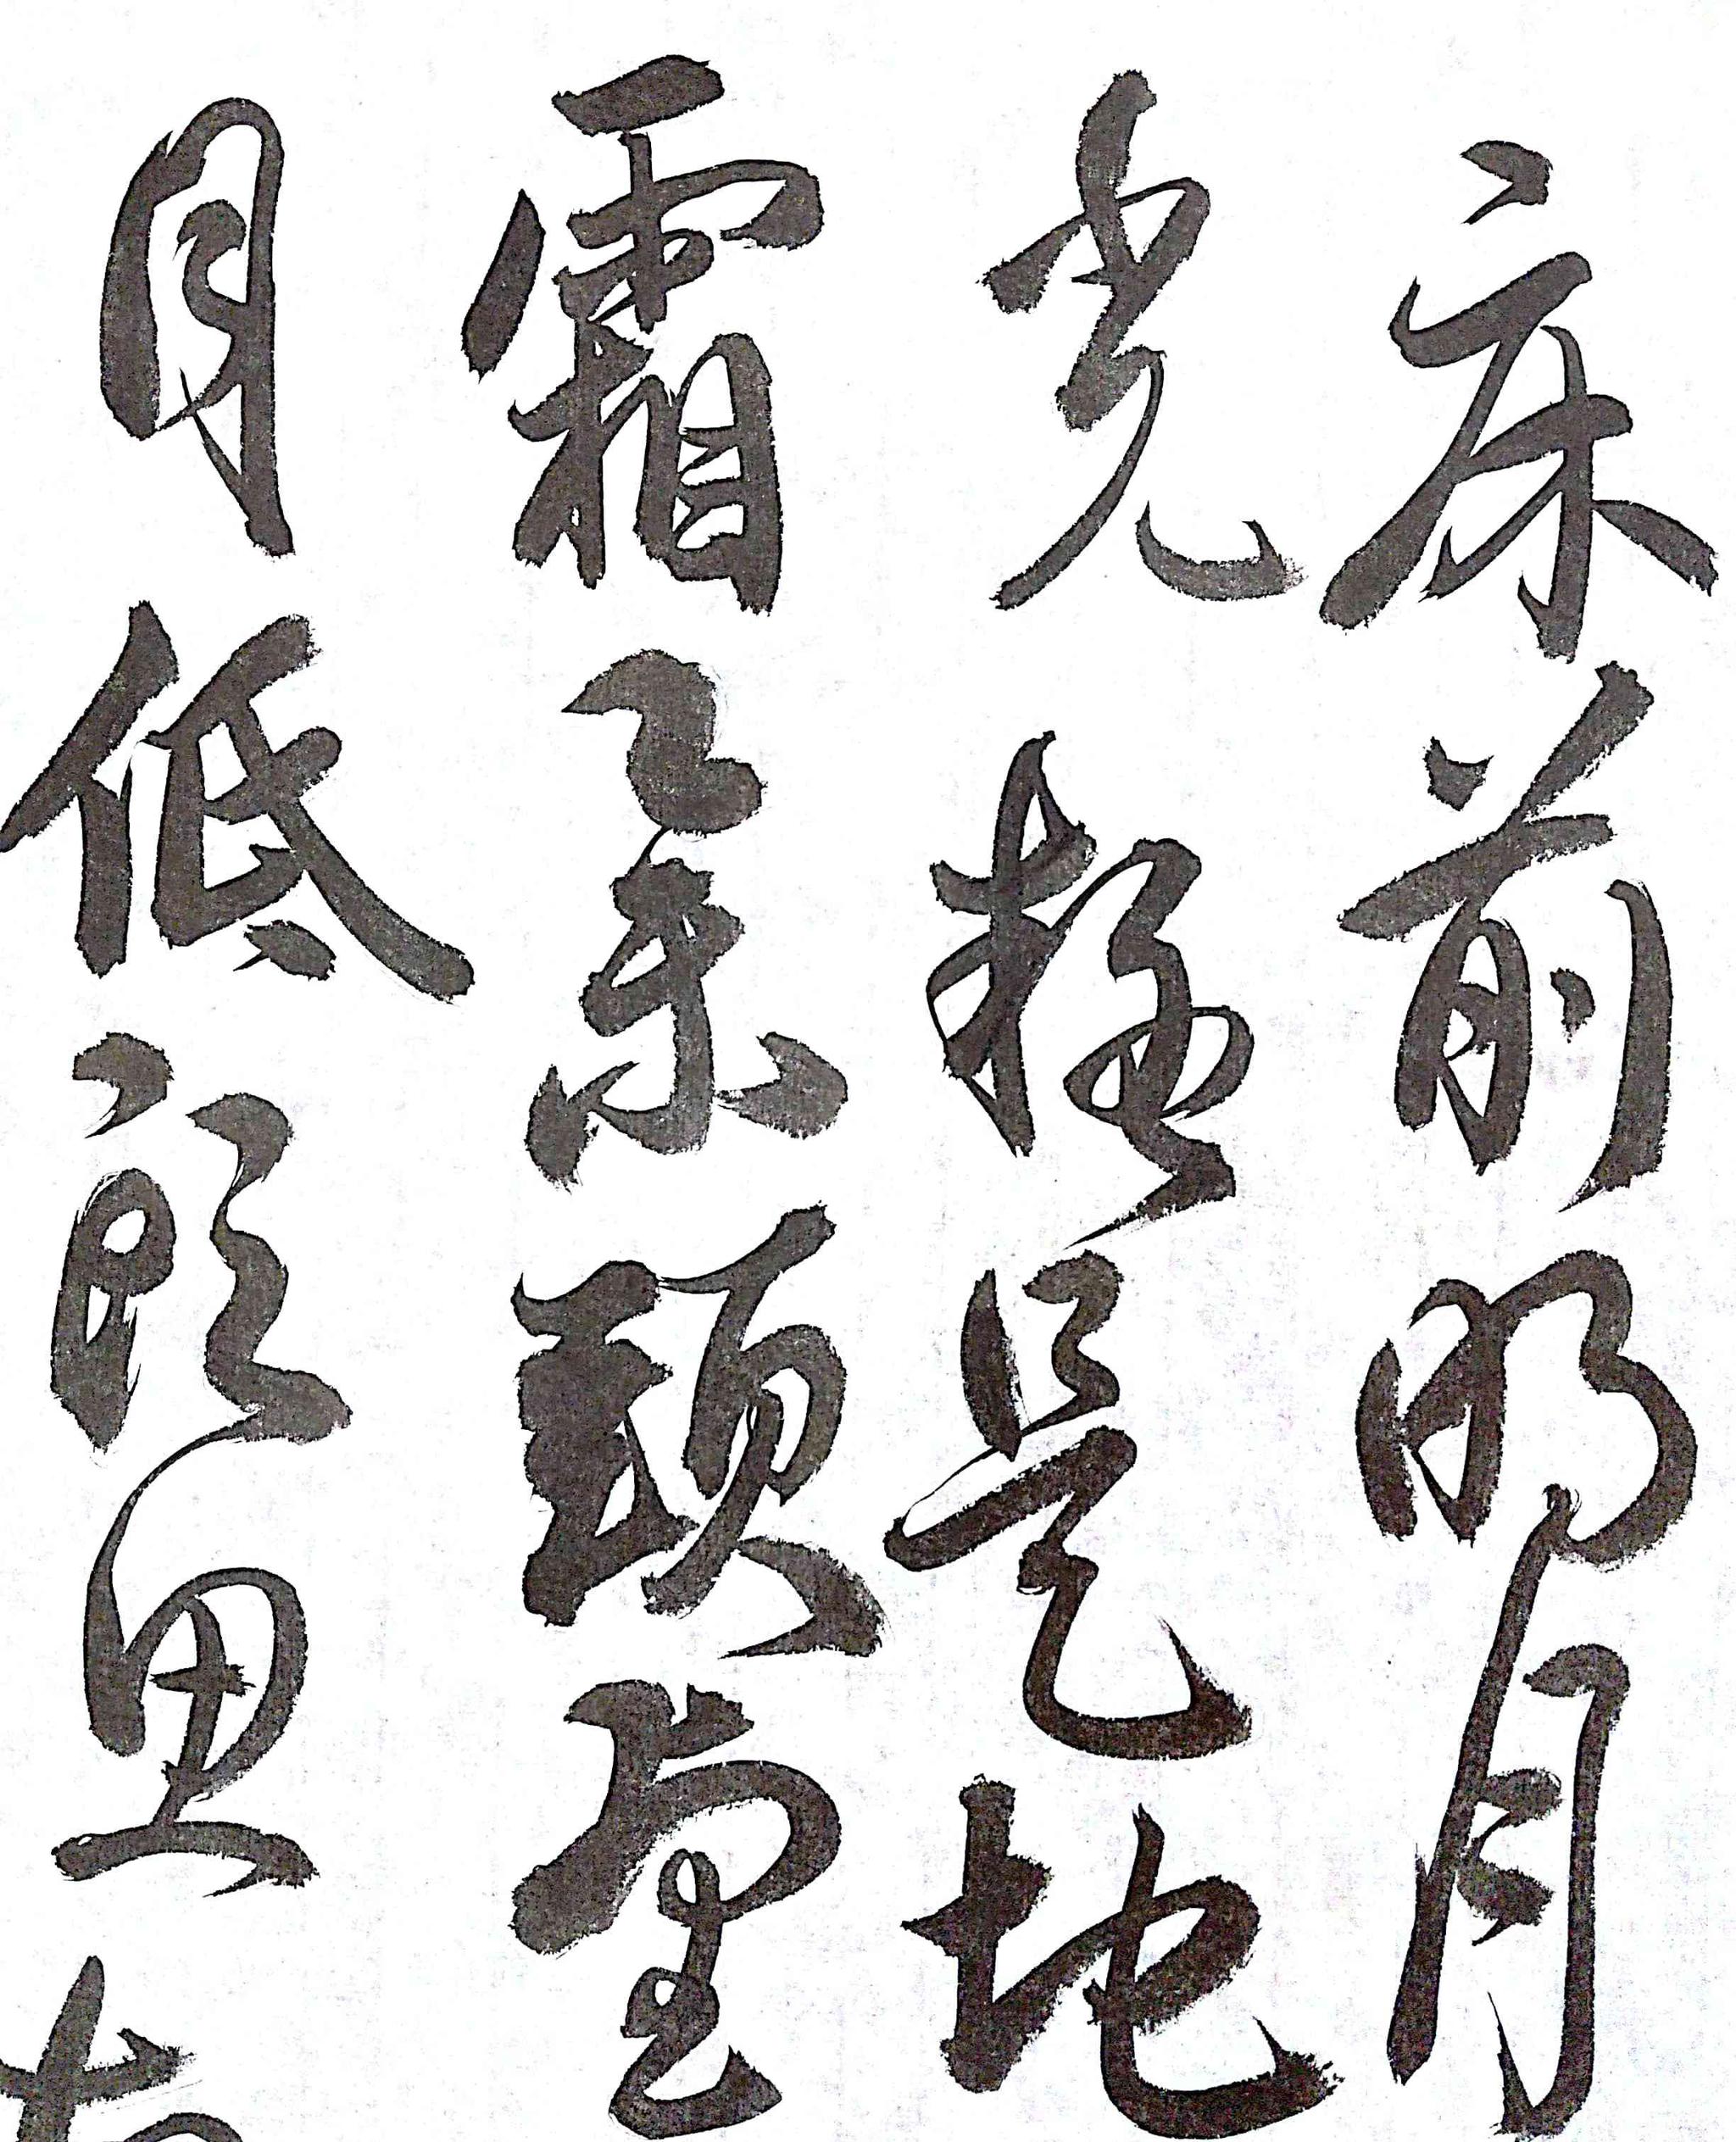 床前明月
光疑是地
霜舉頭望
月低頭思